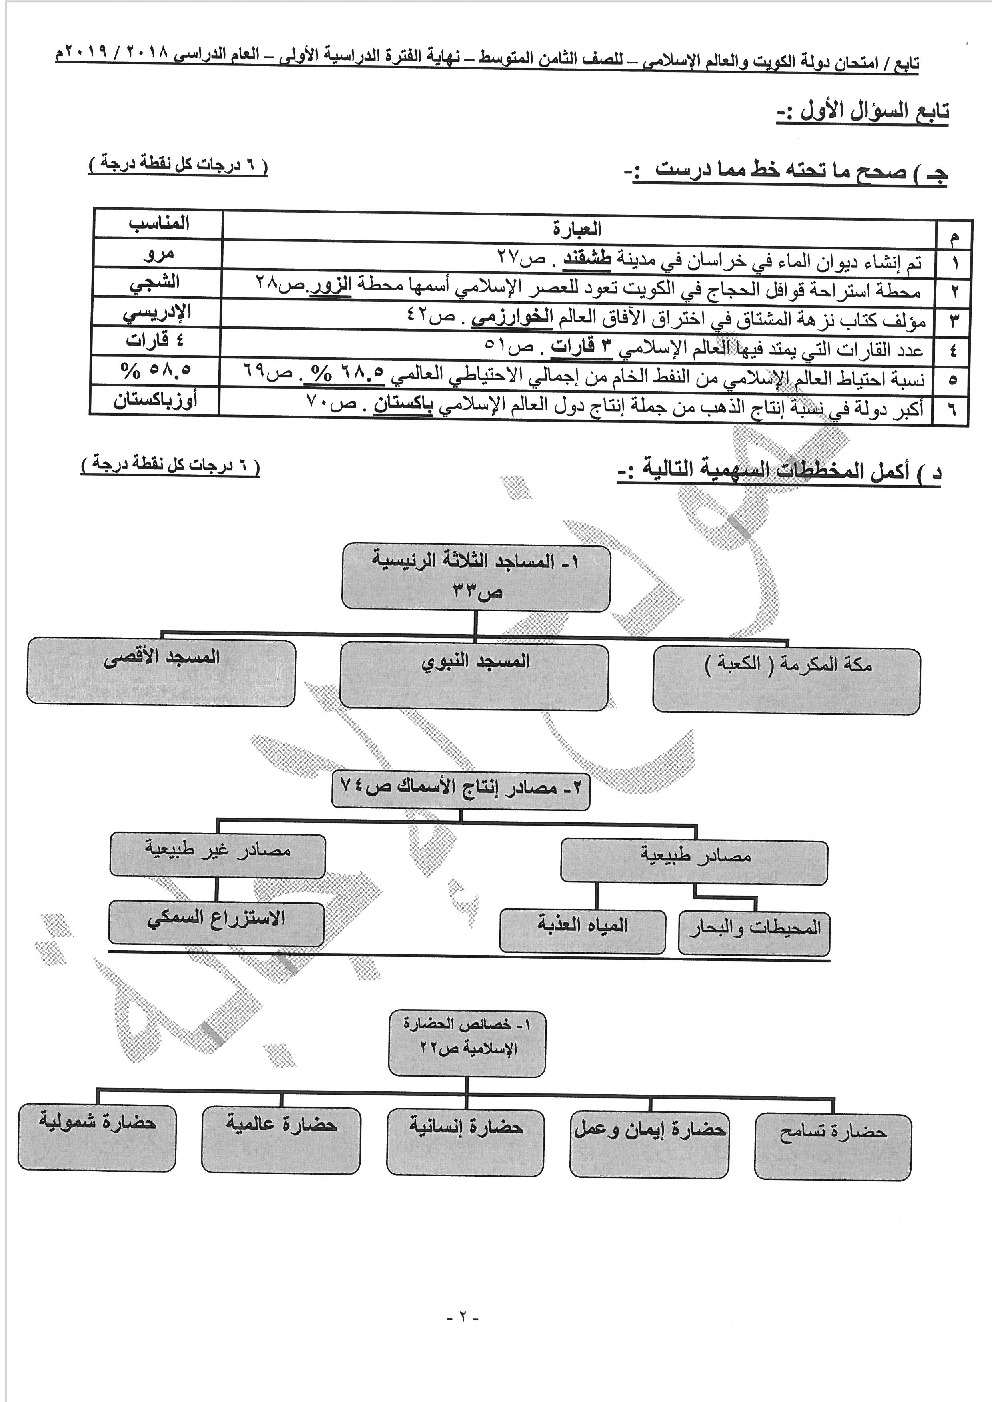 تابع / امتحان دولة الكويت والعالم الإسلامي – للصف الثامن المتوسط – نهاية الفترة الدراسية الأولى – العام الدراسي ٢٠١٨ / ٢٠١٩م
تابع السؤال الأول :-
جـ ) صحح ما تحته خط مما درست :- ( ٦ درجات كل نقطة درجة )
م العبارة المناسب
١ تم إنشاء ديوان الماء في خراسان في مدينة طشقند . ص٢٧ مرو
٢ محطة استراحة قوافل الحجاج في الكويت تعود للعصر الإسلامي أسمها محطة الزور.ص٢٨ الشجي
٣ مؤلف كتاب نزهة المشتاق في اختراق الآفاق العالم الخوارزمي . ص٤٢ الإدريسي
٤ عدد القارات التي يمتد فيها العالم الإسلامي ٣ قارات . ص٥١ ٤ قارات
٥ نسبة احتياط العالم الإسلامي من النفط الخام من إجمالي الاحتياطي العالمي ٦٨.٥ % . ص٦٩ ٥٨.٥ %
٦ أكبر دولة في نسبة إنتاج الذهب من جملة إنتاج دول العالم الإسلامي باكستان . ص٧٠ أوزباكستان
د ) أكمل المخططات السهمية التالية :- ( ٦ درجات كل نقطة درجة )
١- المساجد الثلاثة الرئيسية
ص٣٣
مكة المكرمة ( الكعبة ) المسجد النبوي المسجد الأقصى
٢- مصادر إنتاج الأسماك ص٧٤
مصادر طبيعية مصادر غير طبيعية
المحيطات والبحار المياه العذبة الاستزراع السمكي
١- خصائص الحضارة
الإسلامية ص٢٢
حضارة تسامح حضارة إيمان وعمل حضارة إنسانية حضارة عالمية حضارة شمولية
- ٢ -